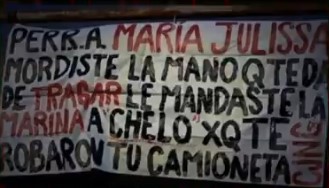 PERR.A MARÍA JULISSA
MORDISTE LA MANO Q TE DA
DE TRAGAR LE MANDASTE LA
MARINA A "CHELO" XQ TE
ROBARON TU CAMIONETA
CJNG